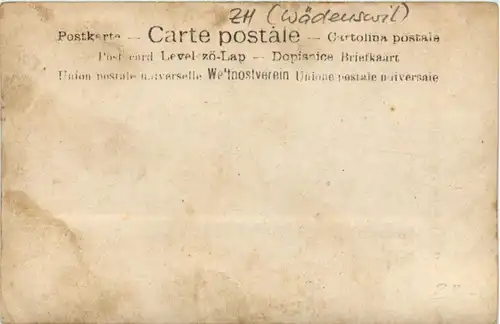 ZH (Wädenswil)
Postkarte — Carte postale — Cartolina postale
Post card Levelezö-Lap — Dopisnice Briefkaart
Union postale universelle Weltpostverein Unione postale universale